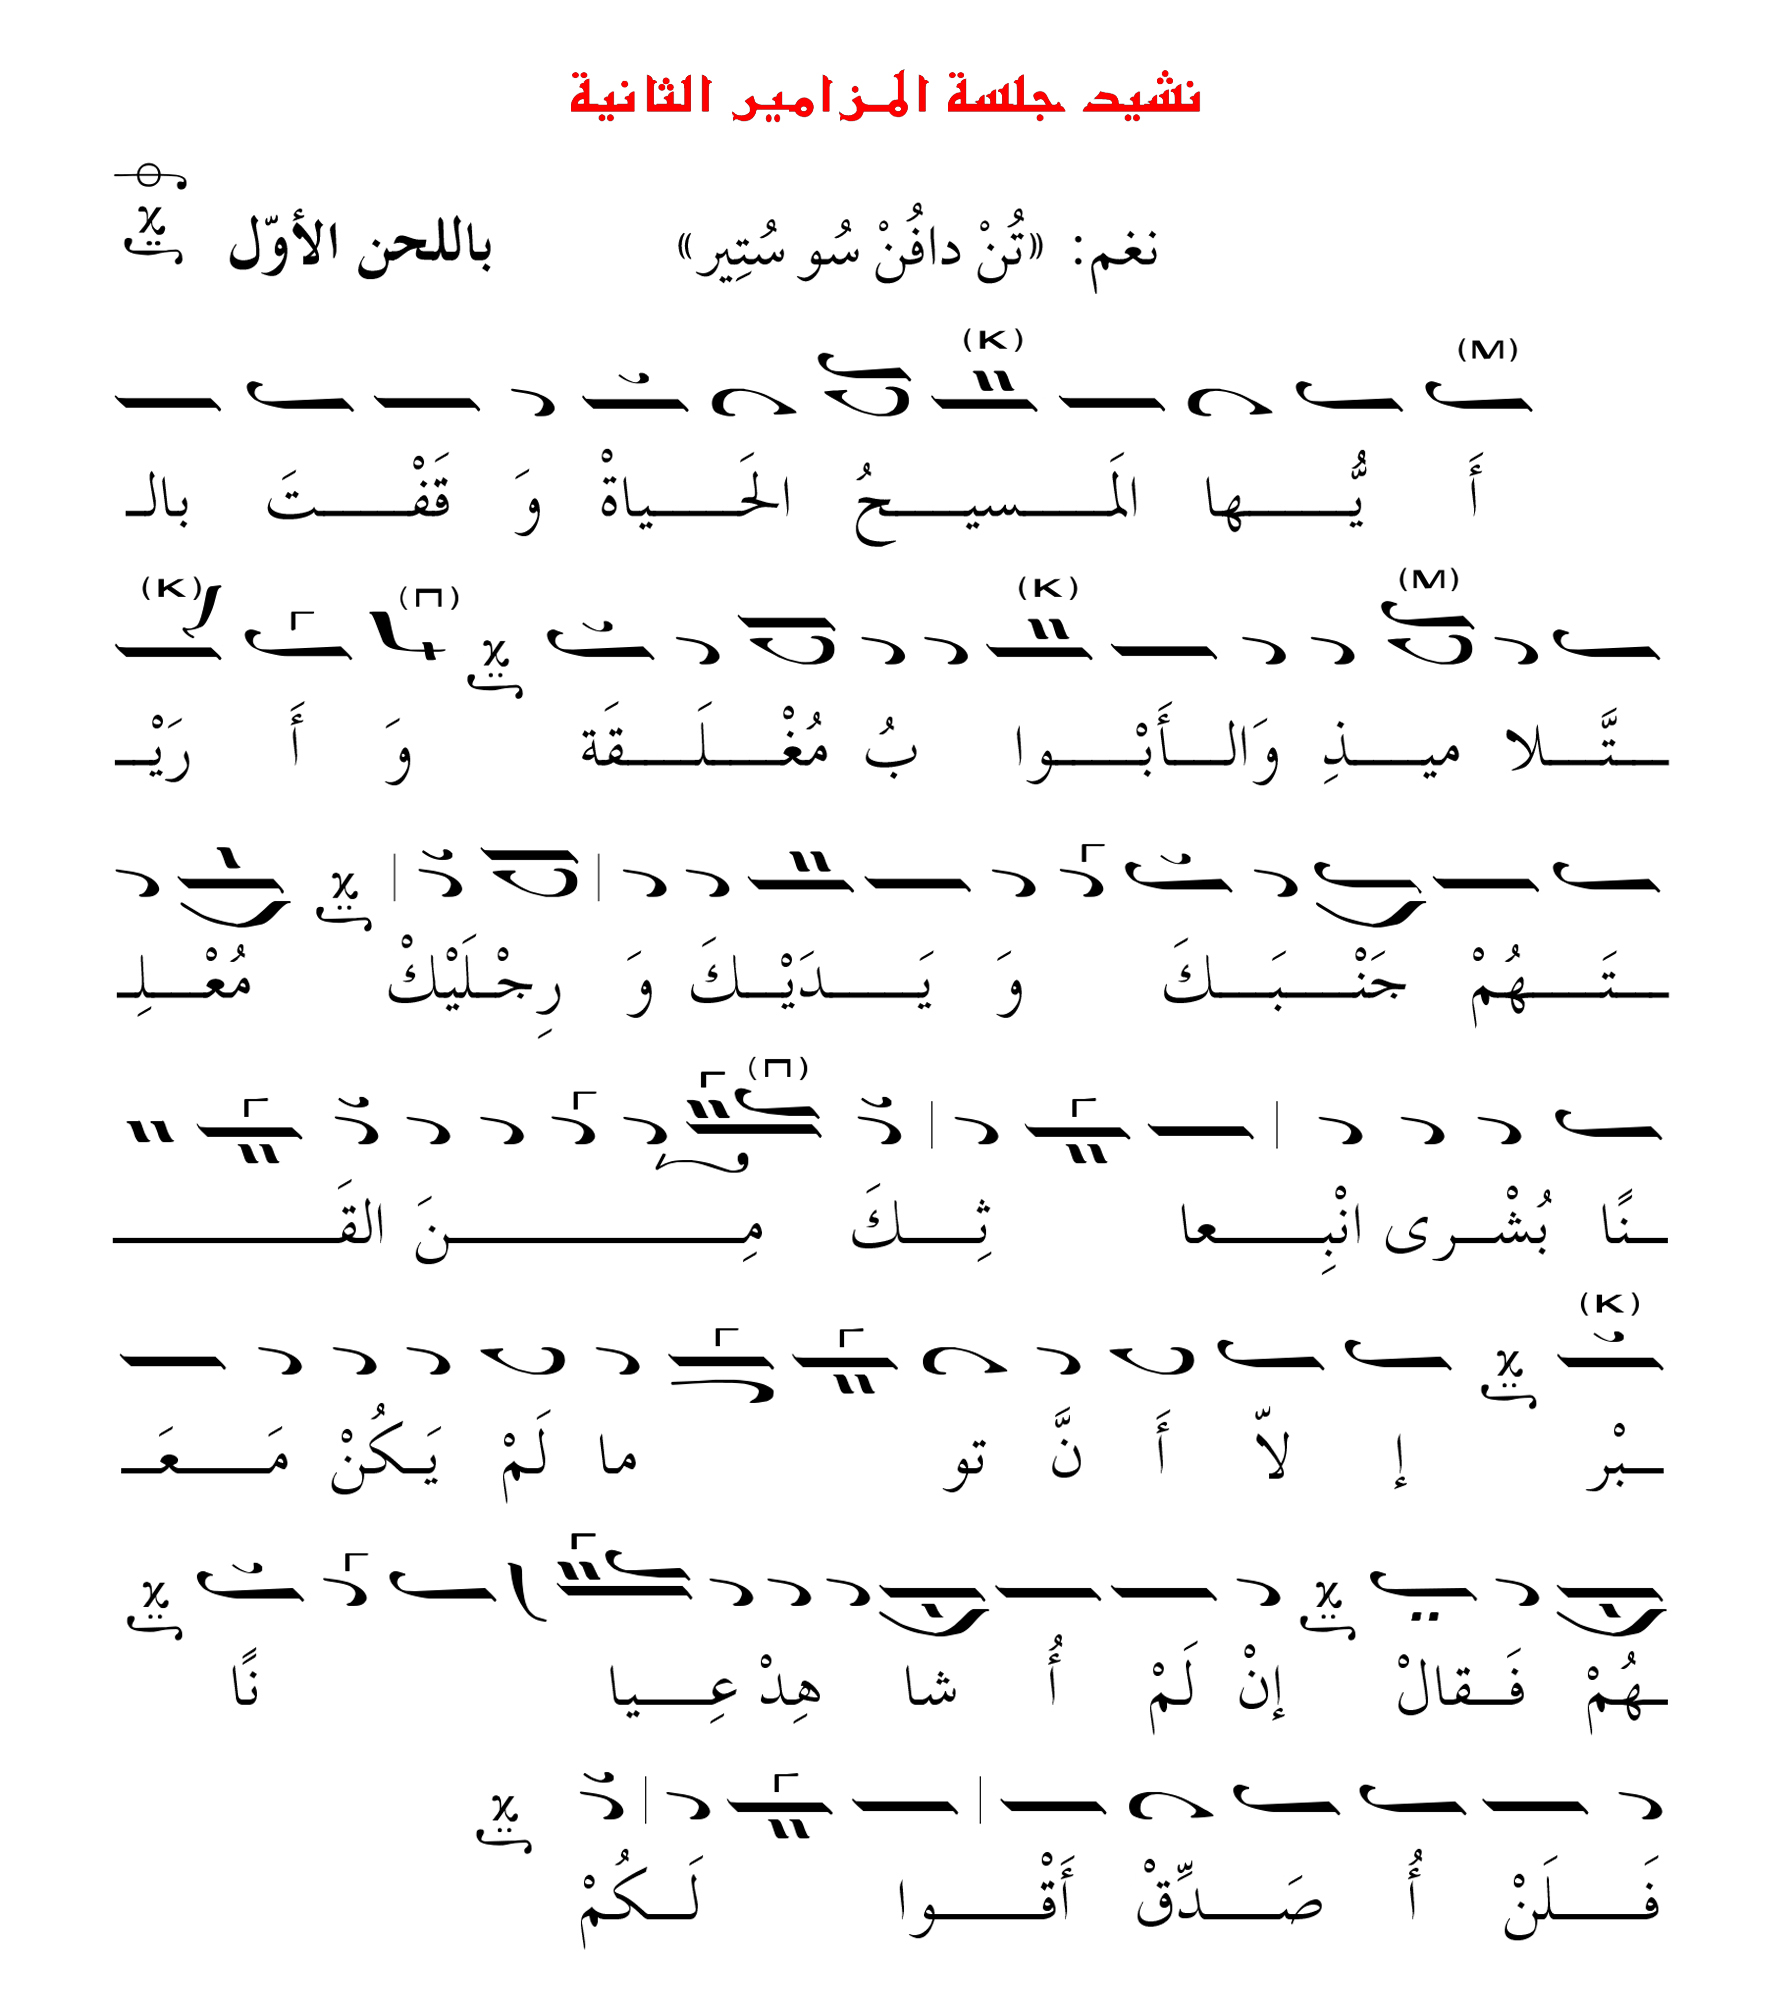 نشيد جلسة المزامير الثانية
نغم: «تُنْ دافُنْ سُو سُتِير» باللحن الأوّل
(M) (K)
أَ يُّـــها المَـــسيـــحُ الحَـــياةْ وَ قَفْـــتَ بالـ
(M) (K) (Π) (K)
ـتَّـــلا ميـــذِ وَالـــأَبْـــوا بُ مُغْـــلَـــقَة وَ أَ رَيْـ
ـتَـــهُمْ جَنْـــبَـــكَ وَ يَـــدَيْـــكَ وَ رِجْـلَيْكْ مُعْـــلِـ
(Π)
ـنًا بُشْـرى انْبِـــعا ثِـــكَ مِـــنَ القَـــ
(K)
ـبْر إ لاّ أَ نَّ تو ما لَمْ يَـكُنْ مَـــعَـ
ـهُمْ فَـقالْ إنْ لَمْ أُ شا هِدْ عِـــيا نًا
فَـــلَنْ أُ صَـــدِّقْ أَقْـــوا لَـــكُمْ